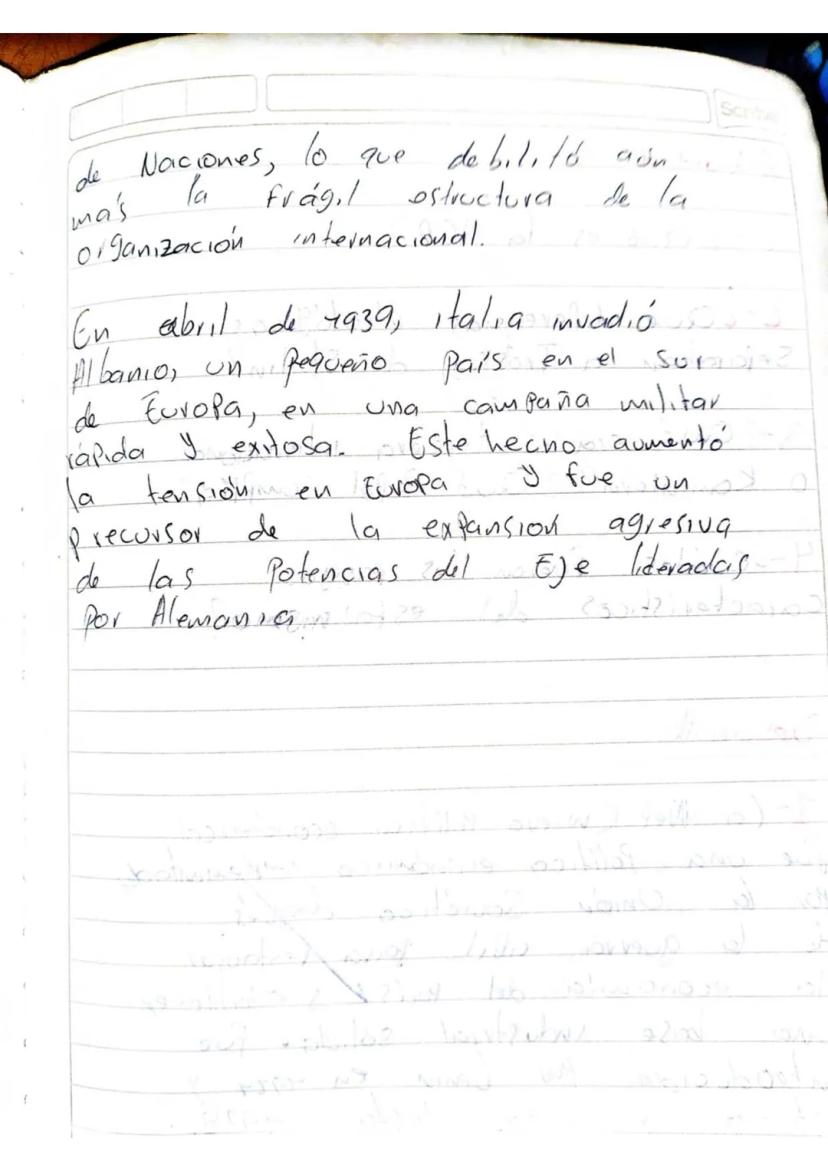 Scribe
de Naciones, lo que debilitó aún
más la frágil estructura de la
organización internacional.
En abril de 1939, italia invadió
Albania, un pequeño país en el sur
de Europa, en una campaña militar
rápida y exitosa. Este hecho aumentó
la tensión en Europa y fue un
precursor de la expansión agresiva
de las Potencias del Eje lideradas
por Alemania